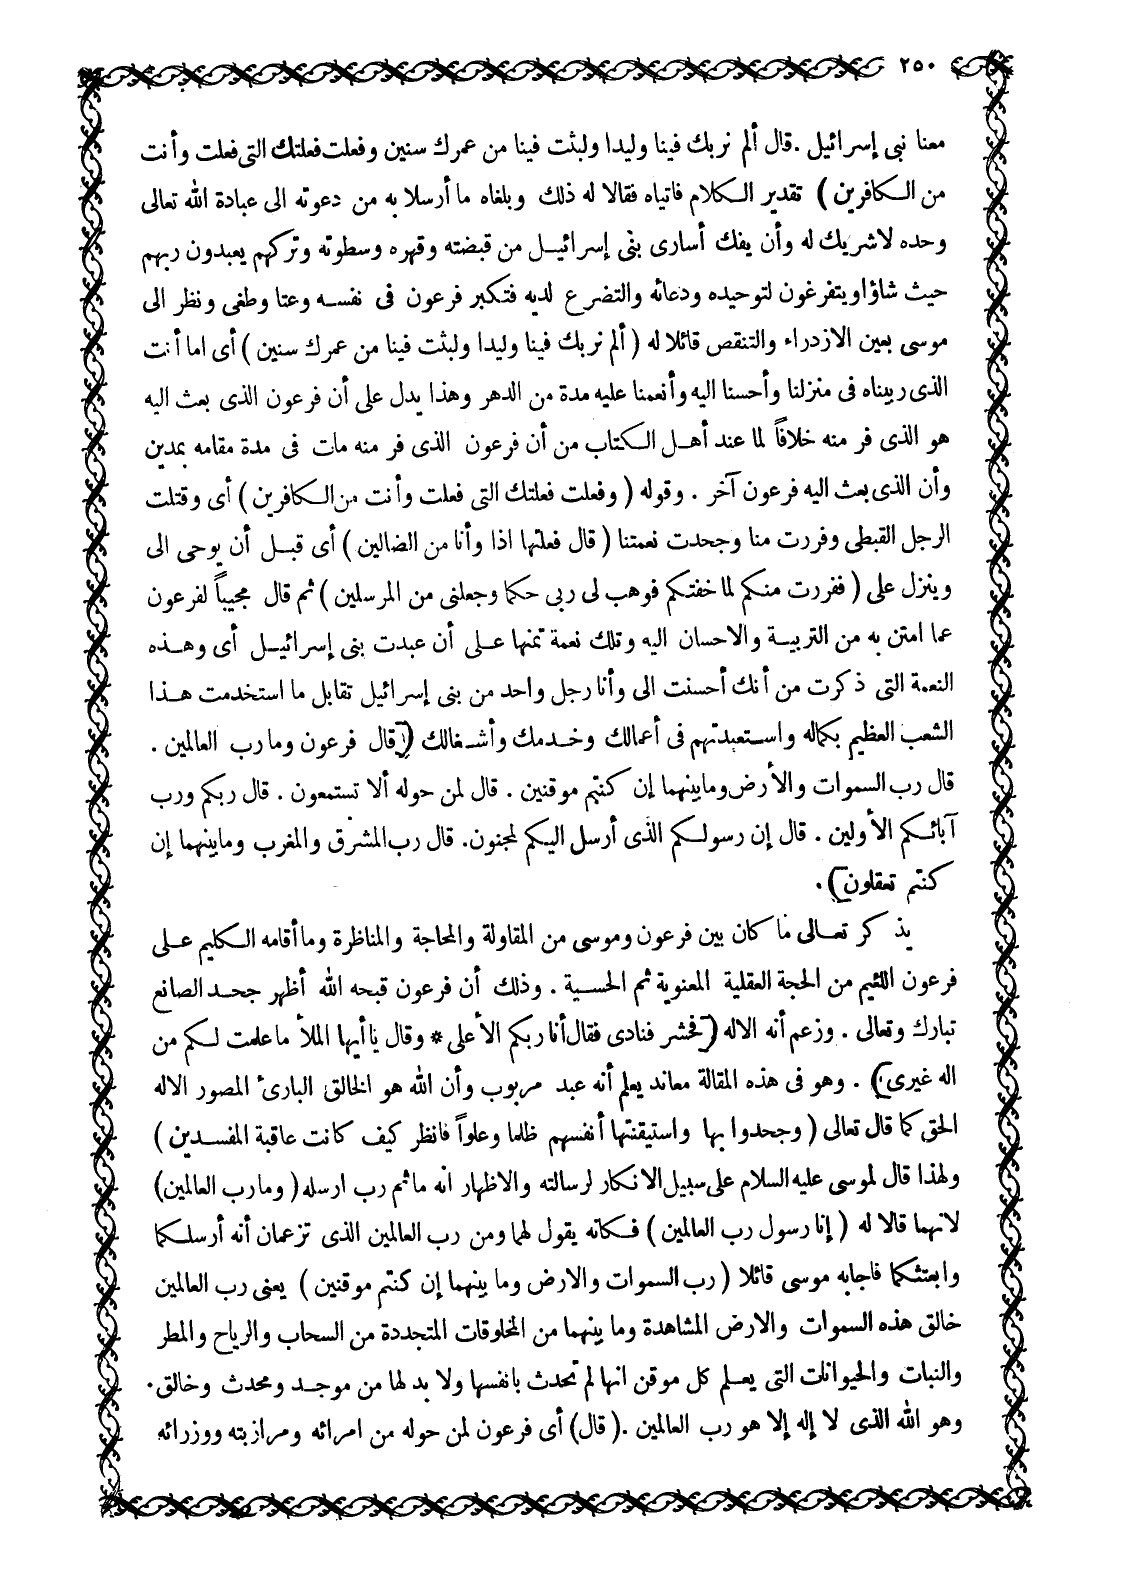 ٢٥٠
معنا نبى إسرائيل .قال ألم نربك فينا وليدا ولبثت فينا من عمرك سنين وفعلت فعلتك التى فعلت وأنت
من الكافرين ) تقدير الكلام فاتياه فقالا له ذلك وبلغاه ما أرسلا به من دعوته الى عبادة الله تعالى
وحده لاشريك له وأن يفك أسارى بنى إسرائيل من قبضته وقهره وسطوته وتركهم يعبدون ربهم
حيث شاؤا ويتفرغون لتوحيده ودعائه والتضرع لديه فتكبر فرعون فى نفسه وعتا وطغى ونظر الى
موسى بعين الازدراء والتنقص قائلا له ( ألم نربك فينا وليدا ولبثت فينا من عمرك سنين ) أى اما أنت
الذى ربيناه فى منزلنا وأحسنا اليه وأنعمنا عليه مدة من الدهر وهذا يدل على أن فرعون الذى بعث اليه
هو الذى فر منه خلافاً لما عند أهل الكتاب من أن فرعون الذى فر منه مات فى مدة مقامه بمدين
وأن الذى بعث اليه فرعون آخر . وقوله ( وفعلت فعلتك التى فعلت وأنت من الكافرين ) أى وقتلت
الرجل القبطى وفررت منا وجحدت نعمتنا ( قال فعلتها اذا وأنا من الضالين ) أى قبل أن يوحى الى
وينزل على ( ففررت منكم لما خفتكم فوهب لى ربى حكما وجعلنى من المرسلين ) ثم قال مجيباً لفرعون
عما امتن به من التربية والاحسان اليه وتلك نعمة تمنها على أن عبدت بنى إسرائيل أى وهذه
النعمة التى ذكرت من أنك أحسنت الى وأنا رجل واحد من بنى إسرائيل تقابل ما استخدمت هذا
الشعب العظيم بكماله واستعبدتهم فى أعمالك وخدمك وأشغالك ( قال فرعون وما رب العالمين .
قال رب السموات والأرض وما بينهما إن كنتم موقنين . قال لمن حوله ألا تستمعون . قال ربكم ورب
آبائكم الأولين . قال إن رسولكم الذى أرسل اليكم لمجنون. قال رب المشرق والمغرب وما بينهما إن
كنتم تعقلون ) .
يذكر تعالى ما كان بين فرعون وموسى من المقاولة والمحاجة والمناظرة وما أقامه الكليم على
فرعون اللئيم من الحجة العقلية المعنوية ثم الحسية . وذلك أن فرعون قبحه الله أظهر جحد الصانع
تبارك وتعالى . وزعم أنه الاله ( فحشر فنادى فقال أنا ربكم الأعلى * وقال يا أيها الملأ ما علمت لكم من
اله غيرى ) . وهو فى هذه المقالة معاند يعلم أنه عبد مربوب وأن الله هو الخالق البارئ المصور الاله
الحق كما قال تعالى ( وجحدوا بها واستيقنتها أنفسهم ظلما وعلواً فانظر كيف كانت عاقبة المفسدين )
ولهذا قال لموسى عليه السلام على سبيل الانكار لرسالته والاظهار انه ما ثم رب ارسله ( وما رب العالمين)
لانهما قالا له ( إنا رسول رب العالمين ) فكانه يقول لهما ومن رب العالمين الذى تزعمان أنه أرسلكما
وابعتثكما فاجابه موسى قائلا ( رب السموات والارض وما بينهما إن كنتم موقنين ) يعنى رب العالمين
خالق هذه السموات والارض المشاهدة وما بينهما من المخلوقات المتجددة من السحاب والرياح والمطر
والنبات والحيوانات التى يعلم كل موقن انها لم تحدث بانفسها ولا بد لها من موجد ومحدث وخالق.
وهو الله الذى لا إله إلا هو رب العالمين .( قال) أى فرعون لمن حوله من امرائه ومرازبته ووزرائه